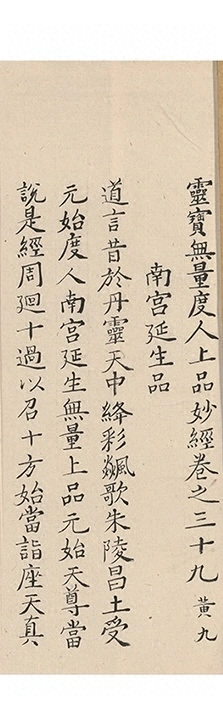 靈寶無量度人上品妙經卷之三十九 黃九
南宮延生品
道言昔於丹靈天中絳彩飆歌朱陵昌土受
元始度人南宮延生無量上品元始天尊當
說是經周廻十過以召十方始當詣座天真